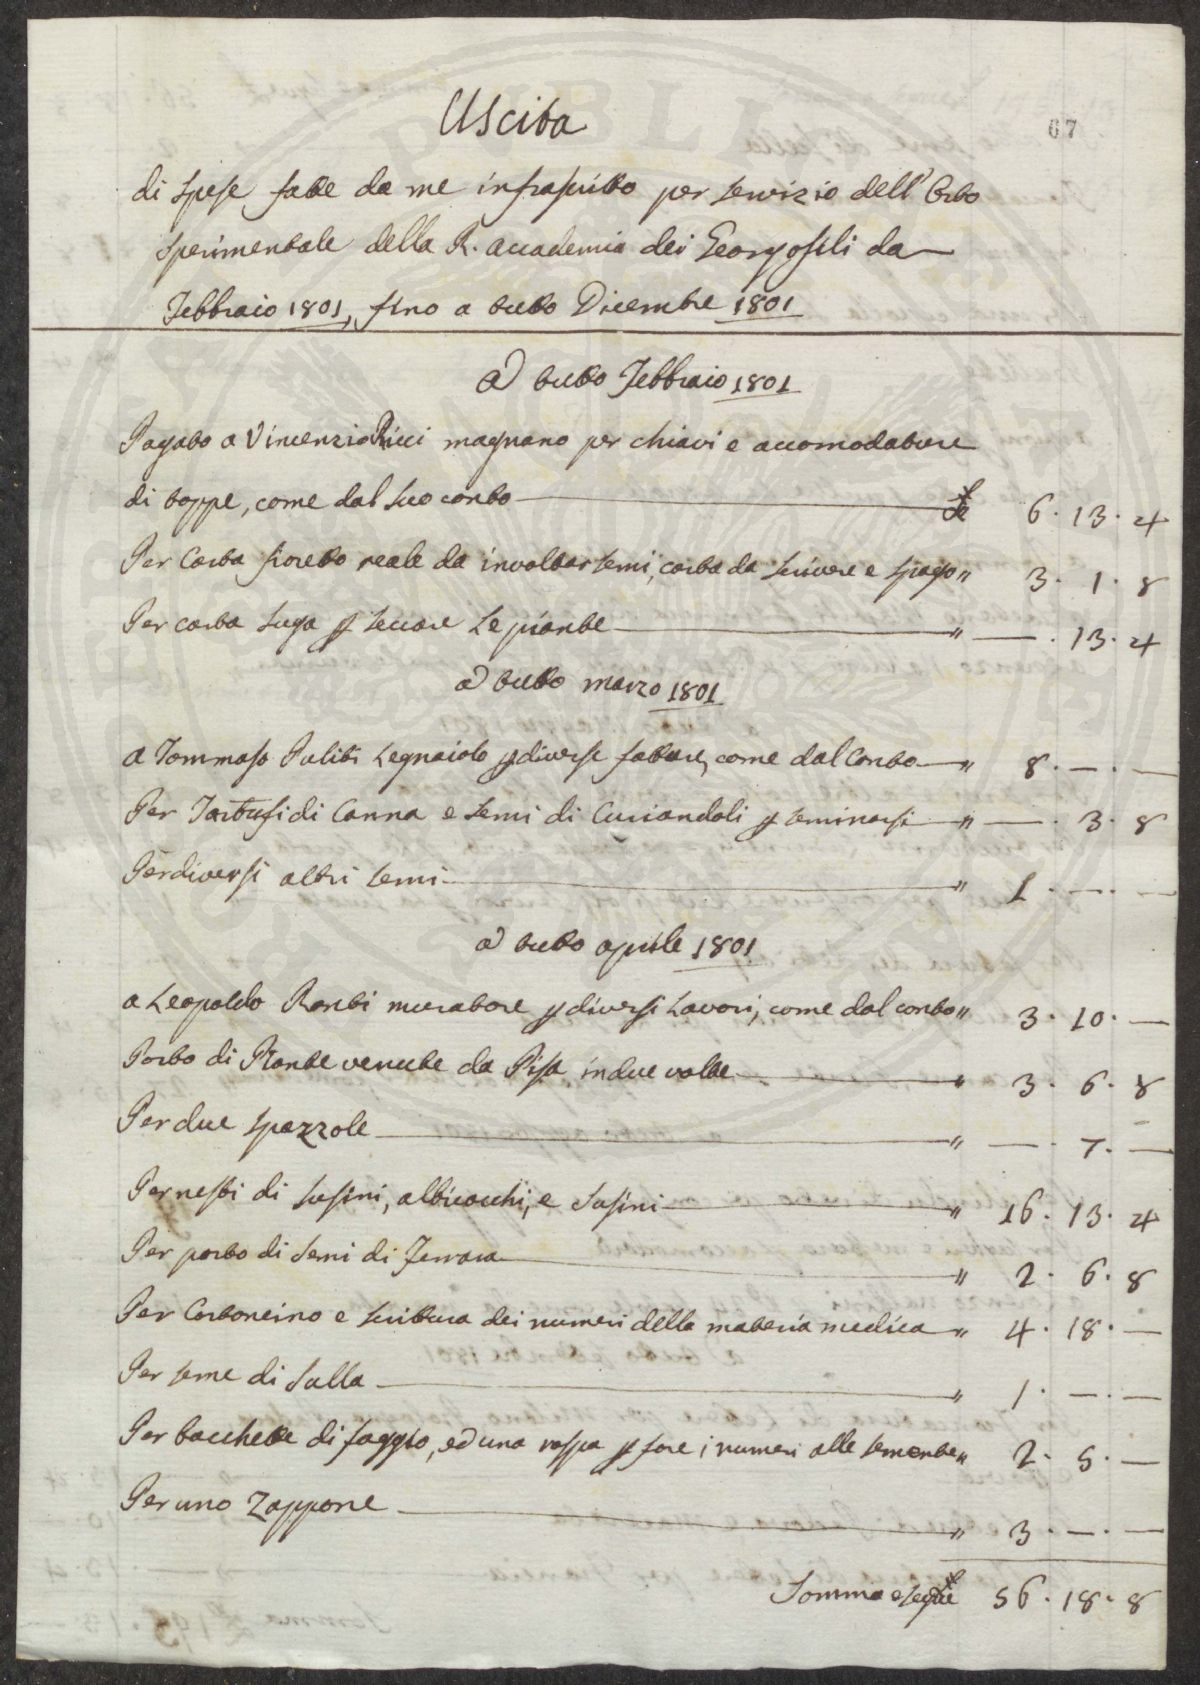 67
Uscita
di spese fatte da me infrascritto per servizio dell'Orto
sperimentale della R. accademia dei Georgofili da
Febbraio 1801, fino a tutto Dicembre 1801
a tutto Febbraio 1801
Pagato a Vincenzio Ricci magnano per chiavi e accomodature
di toppe, come dal suo conto £ 6. 13. 4
Per Carta fioretto reale da involtar semi, carta da scrivere e spago " 3. 1. 8
Per carta suga p seccare le piante " —. 13. 4
a tutto marzo 1801
a Tommaso Puliti Legnaiolo p diverse fatture, come dal Conto " 8. —. —
Per Tartufi di Canna e semi di Curiandoli p seminarsi " —. 3. 8
Per diversi altri semi " 1. —. —
a tutto aprile 1801
a Leopoldo Ranti muratore p diversi Lavori, come dal conto " 3. 10. —
Porto di Piante venute da Pisa in due volte " 3. 6. 8
Per due spazzole " —. 7. —
Per nesti di susini, albicocchi, e susini " 16. 13. 4
Per porto di semi di Ferrara " 2. 6. 8
Per Cartoncino e scrittura dei numeri della materia medica " 4. 18. —
Per seme di Sulla " 1. —. —
Per bacchette di faggio, ed una raspa p fare i numeri alle sementa " 2. 5. —
Per uno Zappone " 3. —. —
Somma e segue £ 56. 18. 8